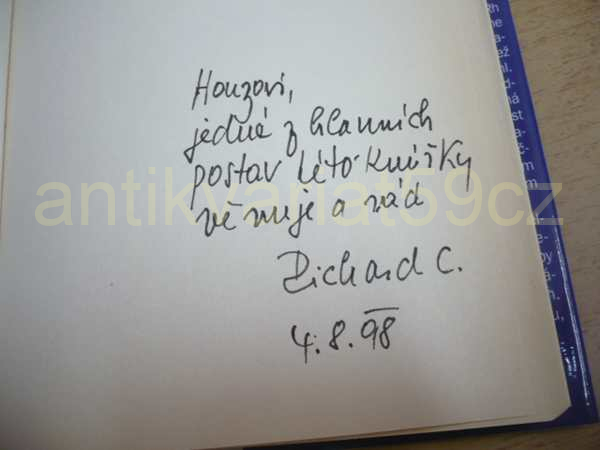 Honzovi,
jedné z hlavních
postav této knížky
věnuje a rád
Richard C.
4.8.98
antikvariat59cz